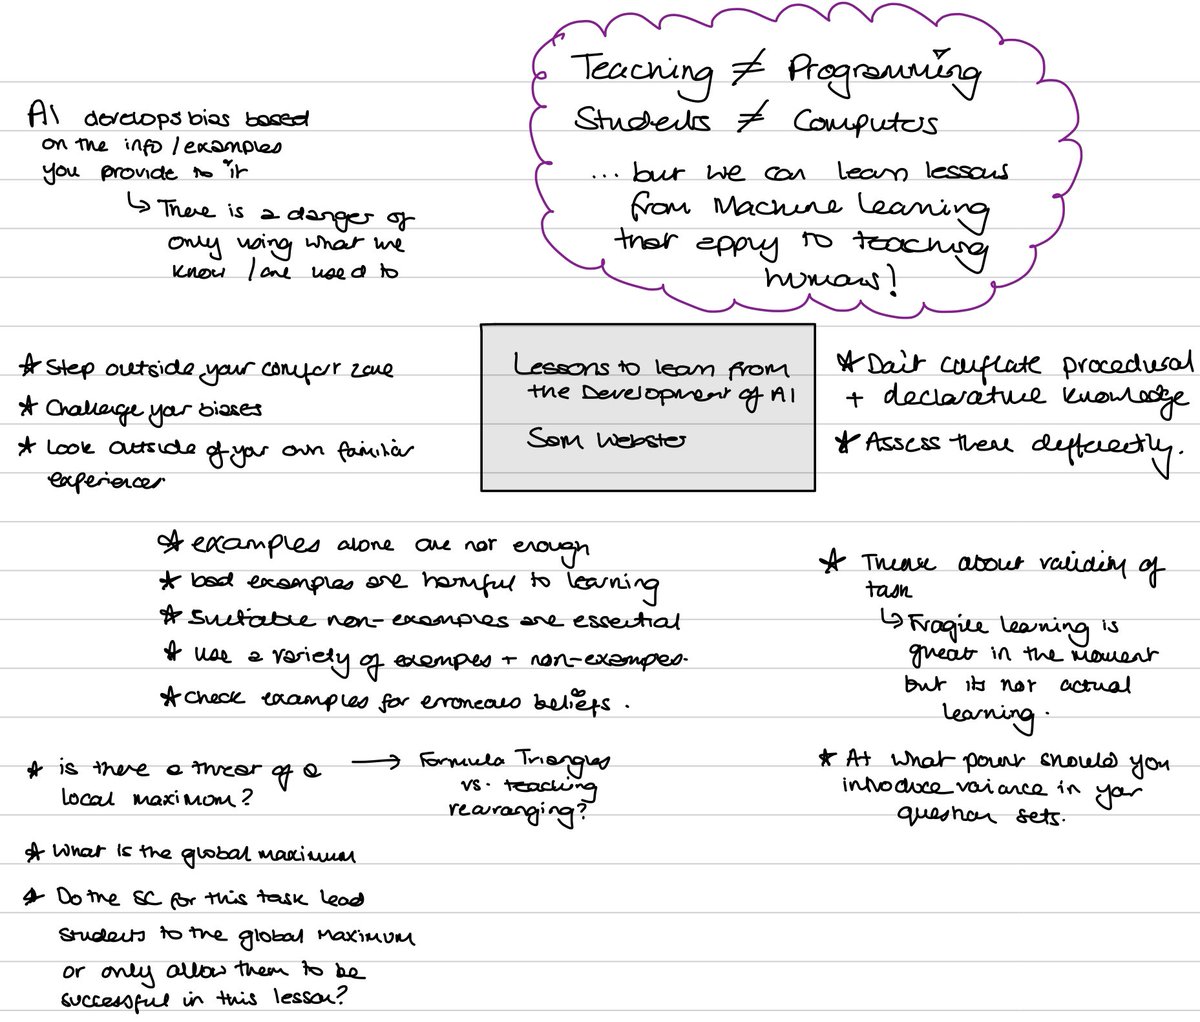 Teaching ≠ Programming
Students ≠ Computers
... but we can learn lessons
from Machine Learning
that apply to teaching
humans!
AI develops bias based
on the info/examples
you provide to it
↳ There is a danger of
only using what we
know / are used to
Lessons to learn from
the Development of AI
Sam Webster
☆ Step outside your comfort zone
☆ Challenge your biases
☆ Look outside of your own familiar
experiences
☆ Don't conflate procedural
+ declarative knowledge
☆ Assess them differently.
☆ examples alone are not enough
☆ bad examples are harmful to learning
☆ Suitable non-examples are essential
☆ use a variety of examples + non-examples.
☆ Check examples for erroneous beliefs.
☆ Think about validity of
task
↳ Fragile learning is
great in the moment
but its not actual
learning.
☆ At what point should you
introduce variance in your
question sets.
☆ is there a threat of a
local maximum?
→ Formula Triangles
vs. teaching
rearranging?
☆ What is the global maximum
☆ Do the SC for this task lead
students to the global maximum
or only allow them to be
successful in this lesson?